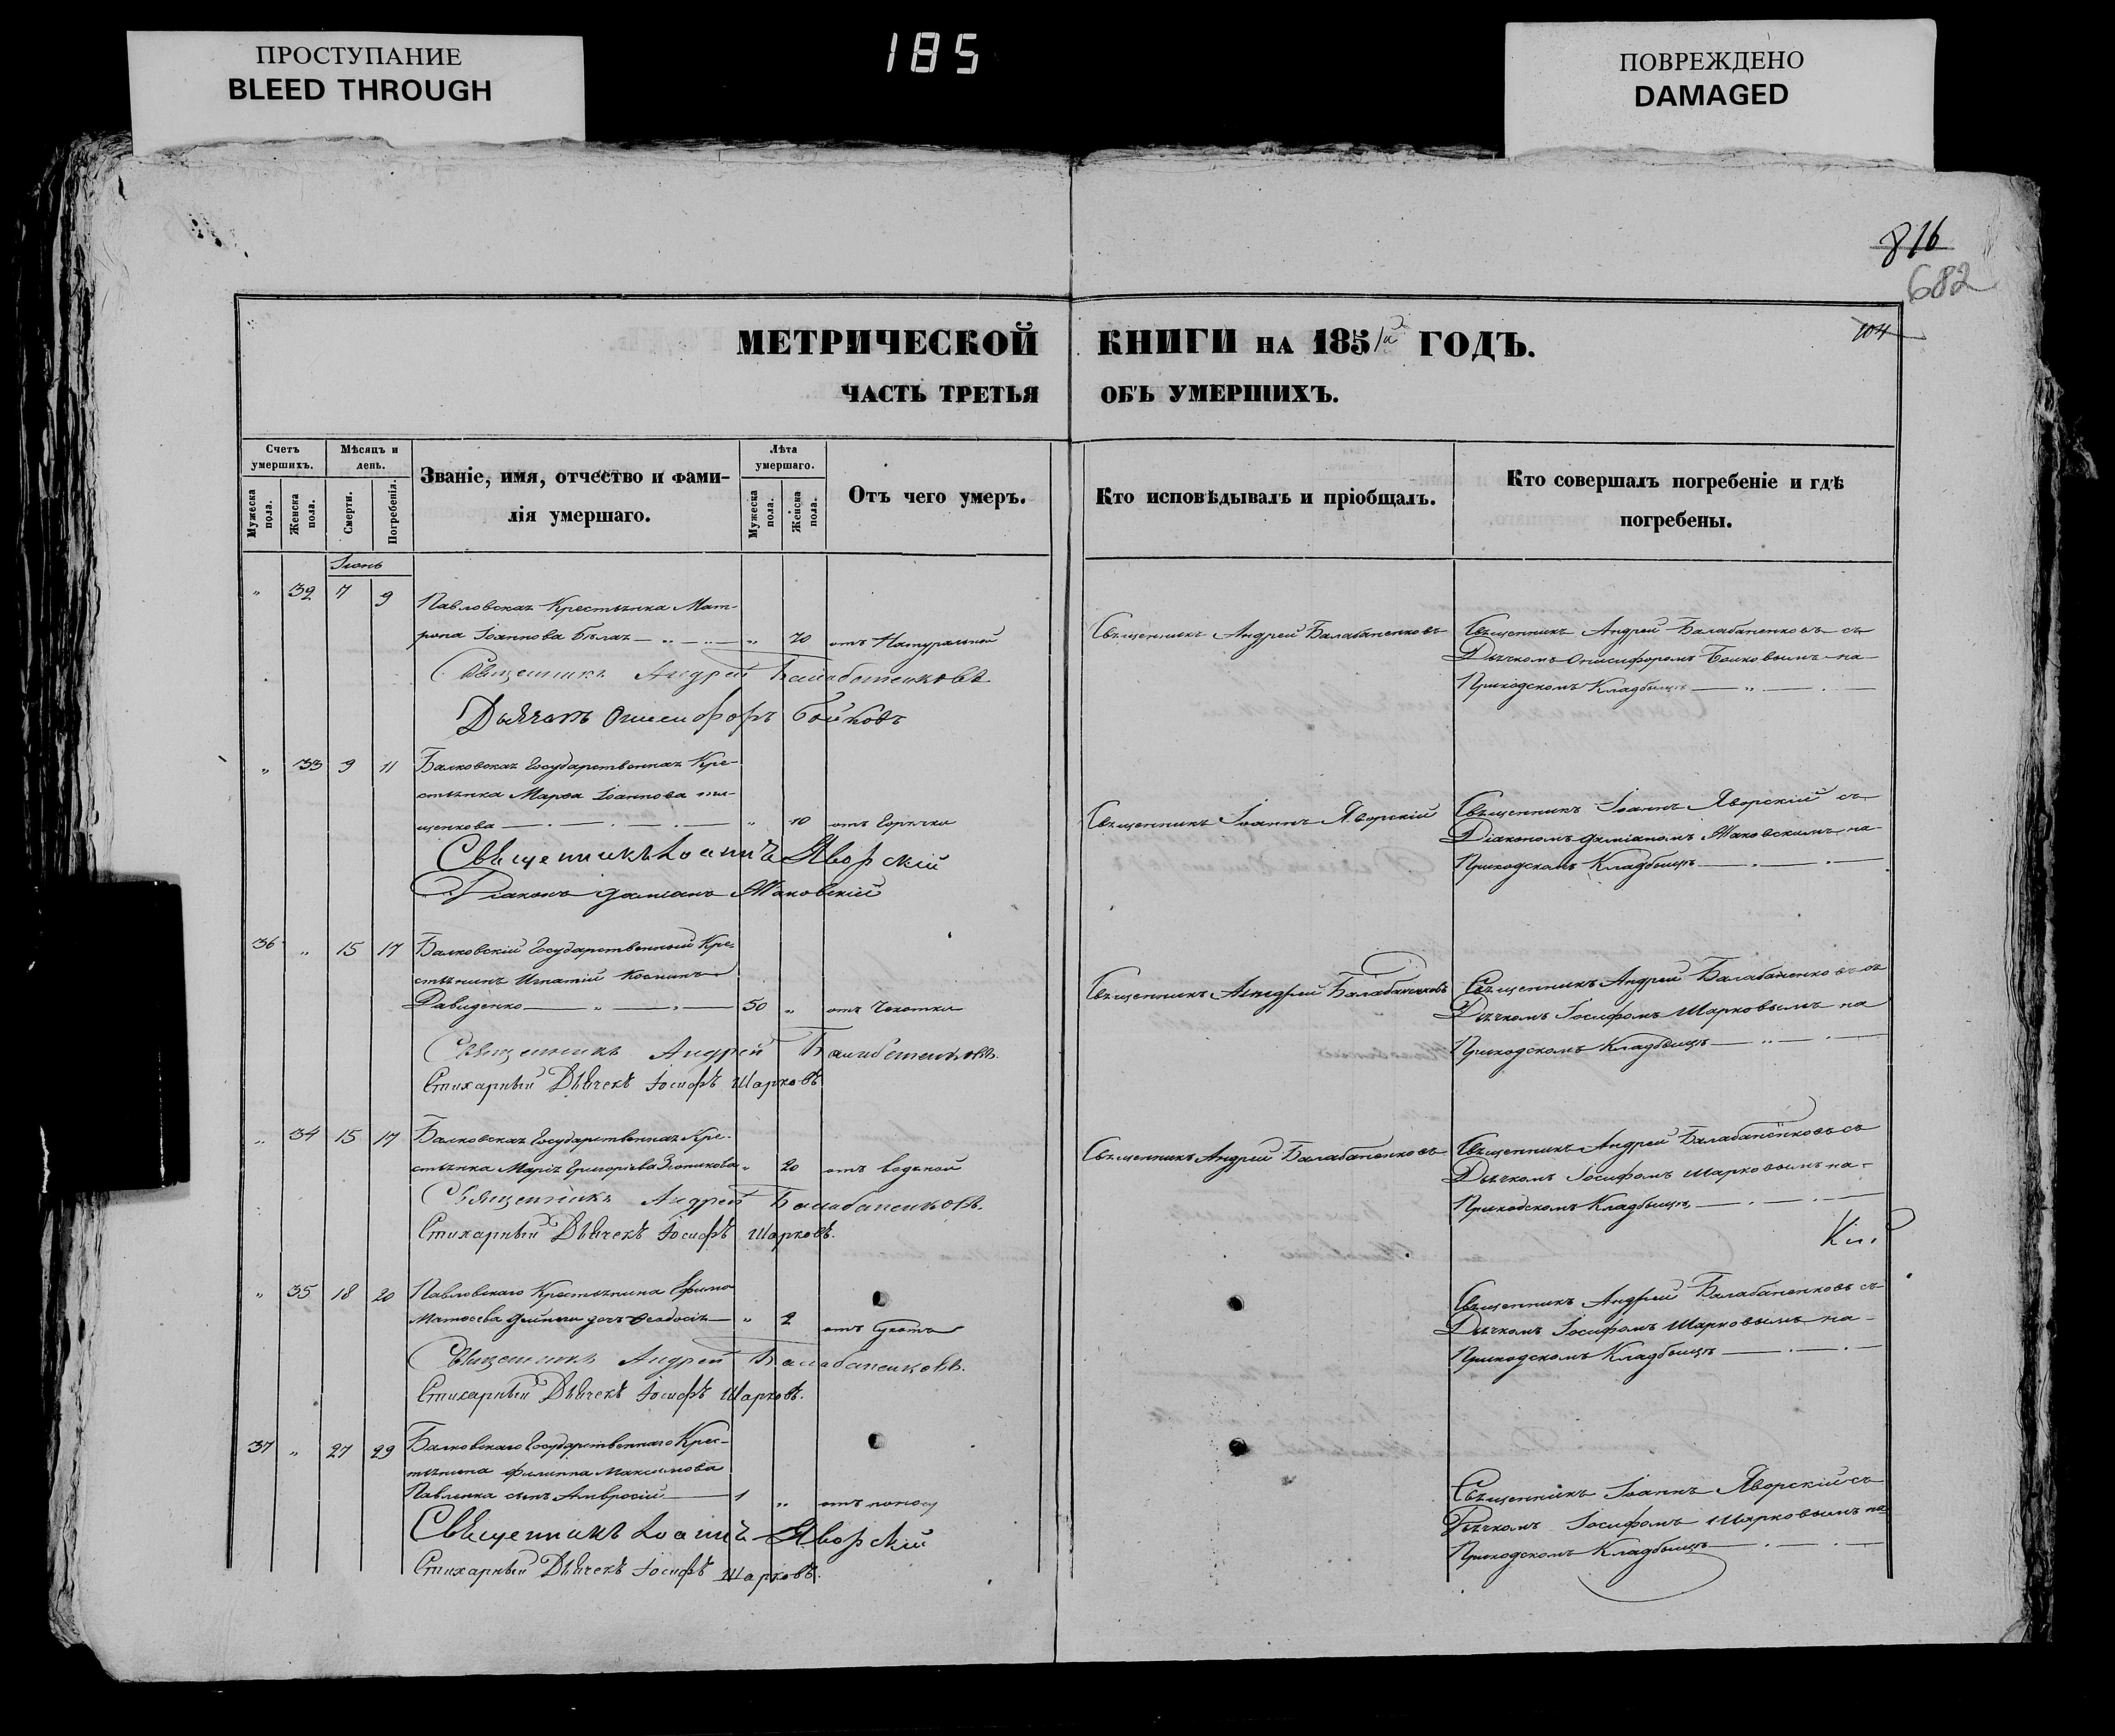 ПРОСТУПАНИЕ
BLEED THROUGH
185
ПОВРЕЖДЕНО
DAMAGED
816
682
104
МЕТРИЧЕСКОЙ КНИГИ НА 1851й ГОДЪ.
ЧАСТЬ ТРЕТЬЯ ОБЪ УМЕРШИХЪ.
Счетъ умершихъ.
Мужеска пола.
Женска пола.
Мѣсяцъ и день.
Смерти.
Погребенія.
Званіе, имя, отчество и фами-
лія умершаго.
Лѣта умершаго.
Мужеска пола.
Женска пола.
Отъ чего умеръ.
Кто исповѣдывалъ и пріобщалъ.
Кто совершалъ погребеніе и гдѣ
погребены.
Іюнь
„ 32 7 9 Павловская Крестьянка Мат-
рона Іоаннова Бѣлая „ 70 отъ Натуральной
Священникъ Андрей Балабаненковъ
Священникъ Андрей Балабаненковъ съ
Дьячкомъ Онисифоромъ Бойковымъ на
Приходскомъ Кладбищѣ
Священникъ Андрей Балабаненковъ
Дьячекъ Онисифоръ Бойковъ
„ 33 9 11 Балковская Государственная Кре-
стьянка Марѳа Іоаннова
щенкова „ 10 отъ Горячки
Священникъ Іоаннъ Яворскій
Священникъ Іоаннъ Яворскій съ
Діакономъ Даміаномъ Маковскимъ на
Приходскомъ Кладбищѣ
Священникъ Іоаннъ Яворскій
Діаконъ Даміанъ Маковскій
36 „ 15 17 Балковскій Государственный Кре-
стьянинъ Игнатій Косминъ
Давиденко 50 „ отъ Чахотки
Священникъ Андрей Балабаненковъ
Священникъ Андрей Балабаненковъ съ
Дьячкомъ Іосифомъ Шарковымъ на
Приходскомъ Кладбищѣ
Священникъ Андрей Балабаненковъ.
Стихарный Дьячекъ Іосифъ Шарковъ
„ 34 15 17 Балковская Государственная Кре-
стьянка Марія Григоріева „ 20 отъ водяной
Священникъ Андрей Балабаненковъ
Священникъ Андрей Балабаненковъ съ
Дьячкомъ Іосифомъ Шарковымъ на
Приходскомъ Кладбищѣ
Священникъ Андрей Балабаненковъ.
Стихарный Дьячекъ Іосифъ Шарковъ.
„ 35 18 20 Павловскаго Крестьянина Ефима
Матѳеева дочь Ѳеодосія „ 2 отъ
Священникъ Андрей Балабаненковъ съ
Дьячкомъ Іосифомъ Шарковымъ на
Приходскомъ Кладбищѣ
Священникъ Андрей Балабаненковъ.
Стихарный Дьячекъ Іосифъ Шарковъ.
37 „ 27 29 Балковскаго Государственнаго Крес-
тьянина Филиппа Максимова
Павленка сынъ Амвросій 1 „ отъ поносу
Священникъ Іоаннъ Яворскій съ
Дьячкомъ Іосифомъ Шарковымъ на
Приходскомъ Кладбищѣ
Священникъ Іоаннъ Яворскій
Стихарный Дьячекъ Іосифъ Шарковъ.